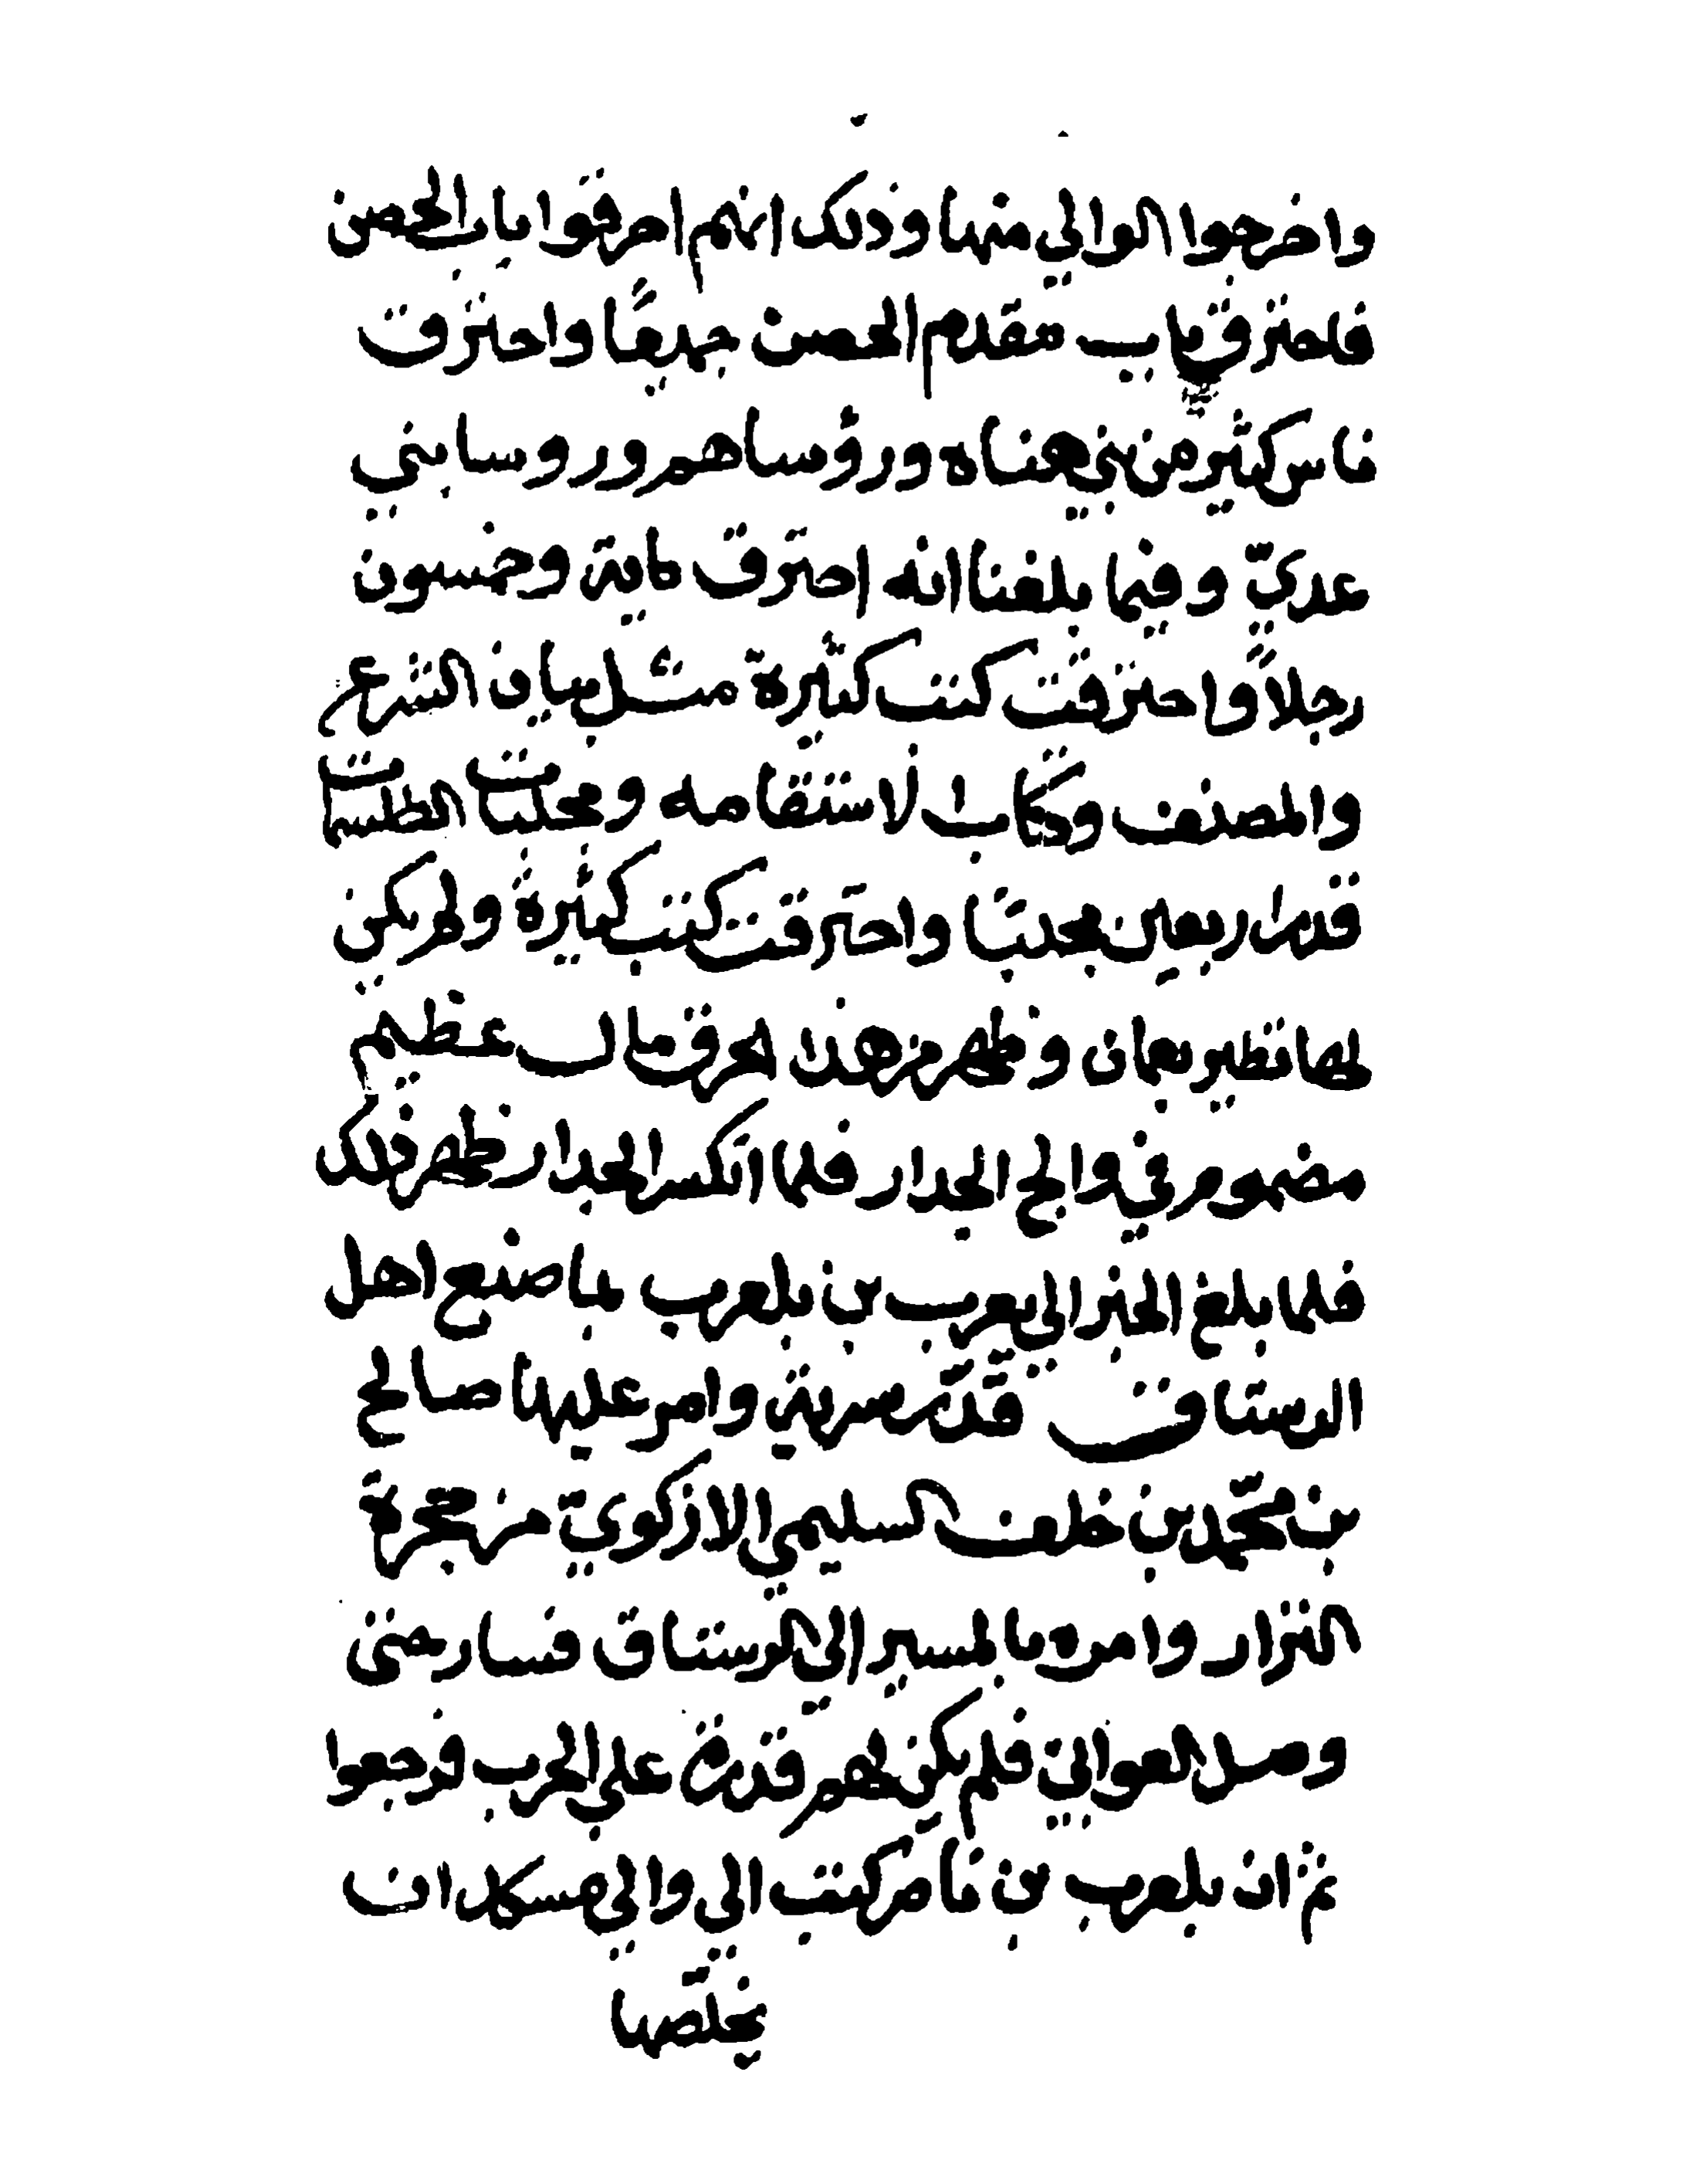 واخرجوا الوالي منها وذلك انهم احرقوا باب الحصن
فاحترق باب مقدم الحصن جميعًا واحترق
ناس كثير من بني هناه ورؤساهم وروسا بني
عديّ وفيما بلغنا انه احترق مايه وخمسون
رجلاً واحترقت كتب كثيرة مثل بيان الشرع
والمصنف وكتاب الاستقامه ومجلبات الطلسمات
قدر اربعين مجلبًا واحترقت كتب كثيرة ولم يكن
لها نظير بعمان وظهر من هذا الحرق مال عظيم
مضمور في والج الجدار فلما انكسر الجدار ظهر ذلك
فلما بلغ الخبر الى يعرب بن بلعرب بما صنع اهل
الرستاق قدّر سرية وامر عليها صالح
بن محمّد بن خلف السليمي الازكوي من حجرة
النزار وامره بالمسير الى الرستاق فسار حتى
وصل العوابي فلم يكن لهم قدرة على الحرب فرجعوا
ثم ان بلعرب بن ناصر كتب الى والي مسكد ان
يخلّصها